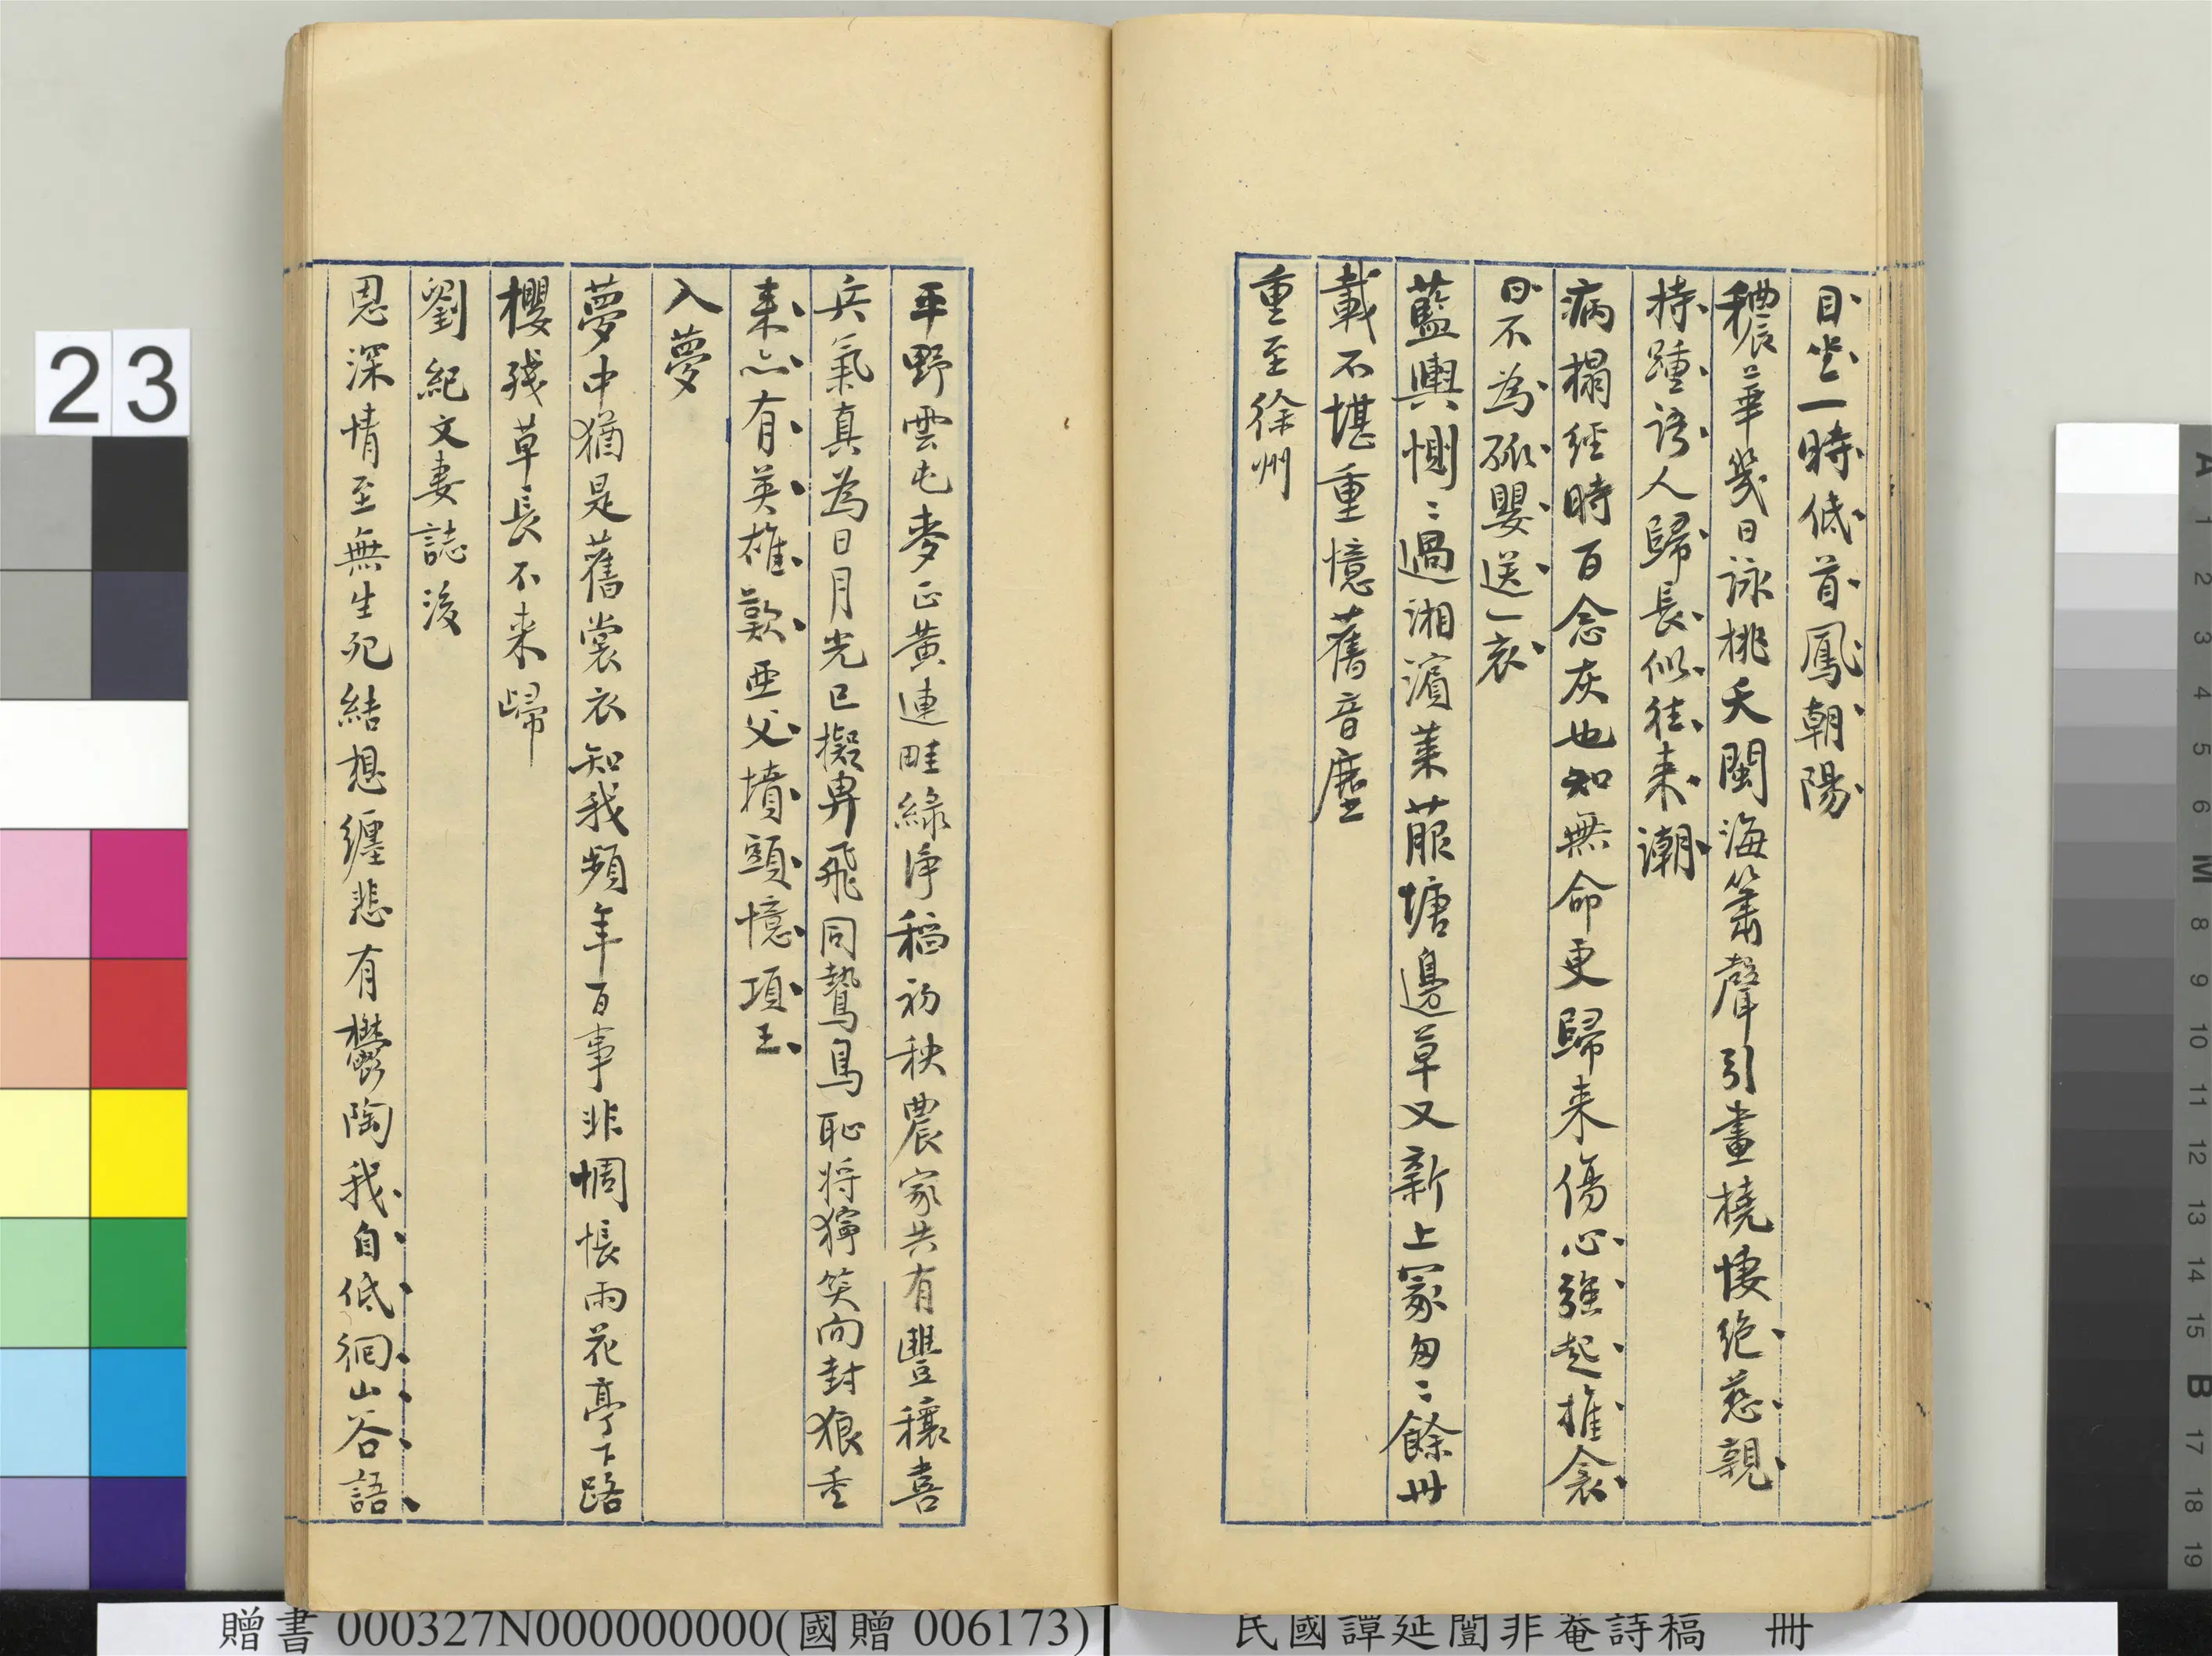 目坐一時低首鳳朝陽
穠華幾日詠桃夭閩海簫聲引畫橈悽絶慈親
持踵語人歸長似往来潮
病榻經時百念灰也知無命更歸来傷心強起推衾
日不為孤嬰送一哀
藍輿惻〻過湘濱萊菔塘邊草又新上冢匆〻餘卅
載不堪重憶舊音塵
重至徐州
平野雲屯麥正黃連畦綠淨稻初秧農家共有豐穰喜
兵氣真為日月光已擬奮飛同鷙鳥恥將獰笑向封狼重
来亦有英雄歎亞父墳頭憶項王
入夢
夢中猶是舊裳衣知我頻年百事非惆悵雨花亭下路
櫻殘草長不来歸
劉紀文妻誌後
恩深情至無生死結想纏悲有鬱陶我自低徊山谷語
23
A 1 2 3 4 5 6 M 8 9 10 11 12 13 14 15 B 17 18 19
贈書 000327N000000000(國贈 006173)
民國譚延闓非菴詩稿 冊